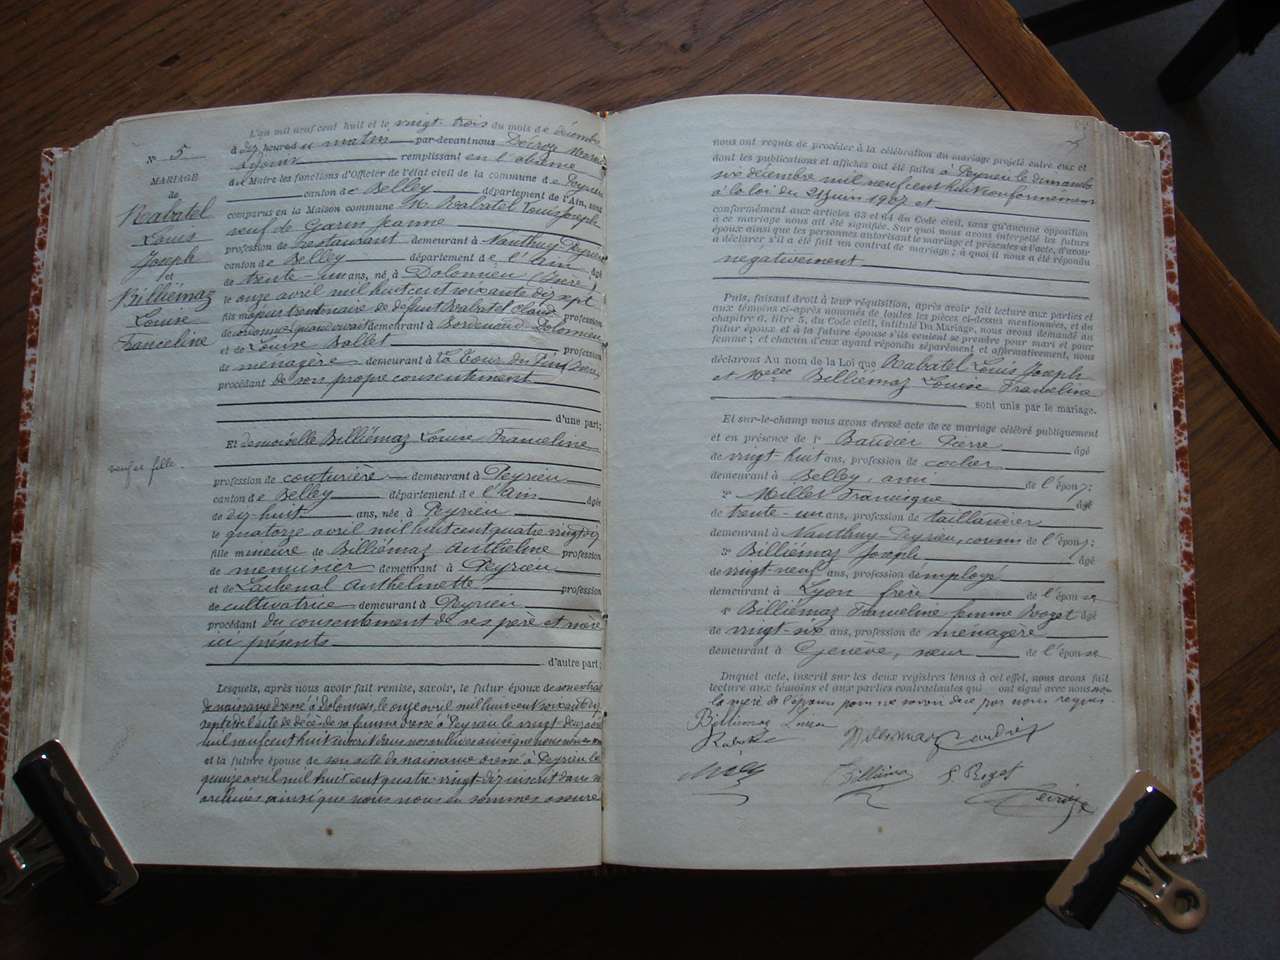 L'an mil neuf cent huit et le vingt-trois du mois de décembre
à dix heures du matin par-devant nous Décroy
remplissant en l'absence
du Maire les fonctions d'Officier de l'état civil de la commune de Peyrieu
canton de Belley département de l'Ain, sont
comparus en la Maison commune M. Rabatel Louis Joseph
veuf de Garin Jeanne
profession de restaurant demeurant à Nanthuy-Peyrieu
canton de Belley département de l'ain âgé
de trente-un ans, né à Dolomieu (Isère)
le onze avril mil huit cent soixante dix sept
fils majeur de défunt Rabatel profession
demeurant à Dolomieu
et de Louise Ballet profession
de ménagère demeurant à la Tour du Pin (Isère)
procédant de son propre consentement
d'une part;
Et demoiselle Billiémaz Louise Franceline
profession de couturière demeurant à Peyrieu
canton de Belley département de l'ain âgée
de dix-huit ans, née à Peyrieu
le quatorze avril mil huit cent quatre vingt dix
fille mineure de Billiémaz Anthelme profession
de menuisier demeurant à Peyrieu
et de Lachenal Anthelmette profession
de cultivatrice demeurant à Peyrieu
procédant du consentement de ses père et mère
ici présents
d'autre part;
Lesquels, après nous avoir fait remise, savoir, le futur époux de son extrait
de naissance dressé à Dolomieu, le onze avril mil huit cent soixante dix
sept et de l'acte de décès de sa femme dressé à Peyrieu le vingt-deux
mil neuf cent huit inscrit dans nos archives ainsi que nous nous en
et la future épouse de son acte de naissance dressé à Peyrieu le
quinze avril mil huit cent quatre-vingt-dix inscrit dans nos
archives ainsi que nous nous en sommes assuré
N° 5
MARIAGE
de
Rabatel
Louis
Joseph
et
Billiémaz
Louise
Franceline
veuf et fille.
nous ont requis de procéder à la célébration du mariage projeté entre eux et
dont les publications et affiches ont été faites à Peyrieu le dimanche
six décembre mil neuf cent huit conformément
à la loi du 21 juin 1907 et
conformément aux articles 63 et 64 du Code civil, sans qu'aucune opposition
à ce mariage nous ait été signifiée. Sur quoi nous avons interpellé les futurs
époux ainsi que les personnes autorisant le mariage et présentes à l'acte, d'avoir
à déclarer s'il a été fait un contrat de mariage; à quoi il nous a été répondu
négativement
Puis, faisant droit à leur réquisition, après avoir fait lecture aux parties et
aux témoins ci-après nommés de toutes les pièces ci-dessus mentionnées, et du
chapitre 6, titre 5, du Code civil, intitulé Du Mariage, nous avons demandé au
futur époux et à la future épouse s'ils veulent se prendre pour mari et pour
femme; et chacun d'eux ayant répondu séparément et affirmativement, nous
déclarons Au nom de la Loi que Rabatel Louis Joseph
et Melle Billiémaz Louise Franceline
sont unis par le mariage.
Et sur-le-champ nous avons dressé acte de ce mariage célébré publiquement
et en présence de 1° Baudier Pierre âgé
de vingt-huit ans, profession de cocher
demeurant à Belley, ami de l'époux;
2° Millet Francisque âgé
de trente-un ans, profession de taillandier
demeurant à Nanthuy-Peyrieu, cousin de l'époux;
3° Billiémaz Joseph âgé
de vingt-neuf ans, profession d'employé
demeurant à Lyon frère de l'épouse
4° Billiémaz Franceline femme Roget âgé
de vingt-six ans, profession de ménagère
demeurant à Genève, sœur de l'épouse
Duquel acte, inscrit sur les deux registres tenus à cet effet, nous avons fait
lecture aux témoins et aux parties contractantes qui ont signé avec nous non
la mère de l'épouse pour ne savoir de ce par nous requise.
Billiémaz Louise
Rabatel
Billiémaz
Baudier
Billiémaz
F Roget